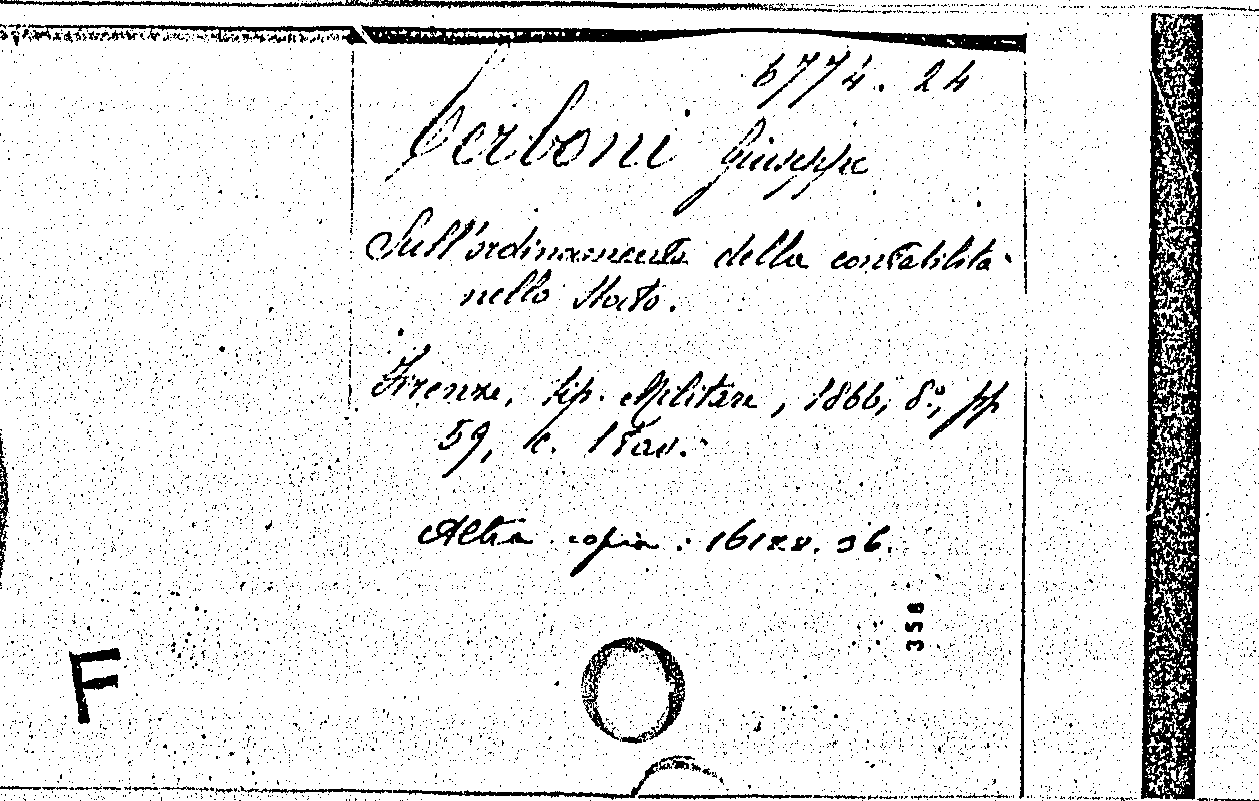 6774. 24
Cerboni Giuseppe
Sull'ordinamento della contabilità
nello Stato.
Firenze, tip. Militare, 1866, 8º, pp
59, c. 1 tav.
Altra copia: 36.
358
F